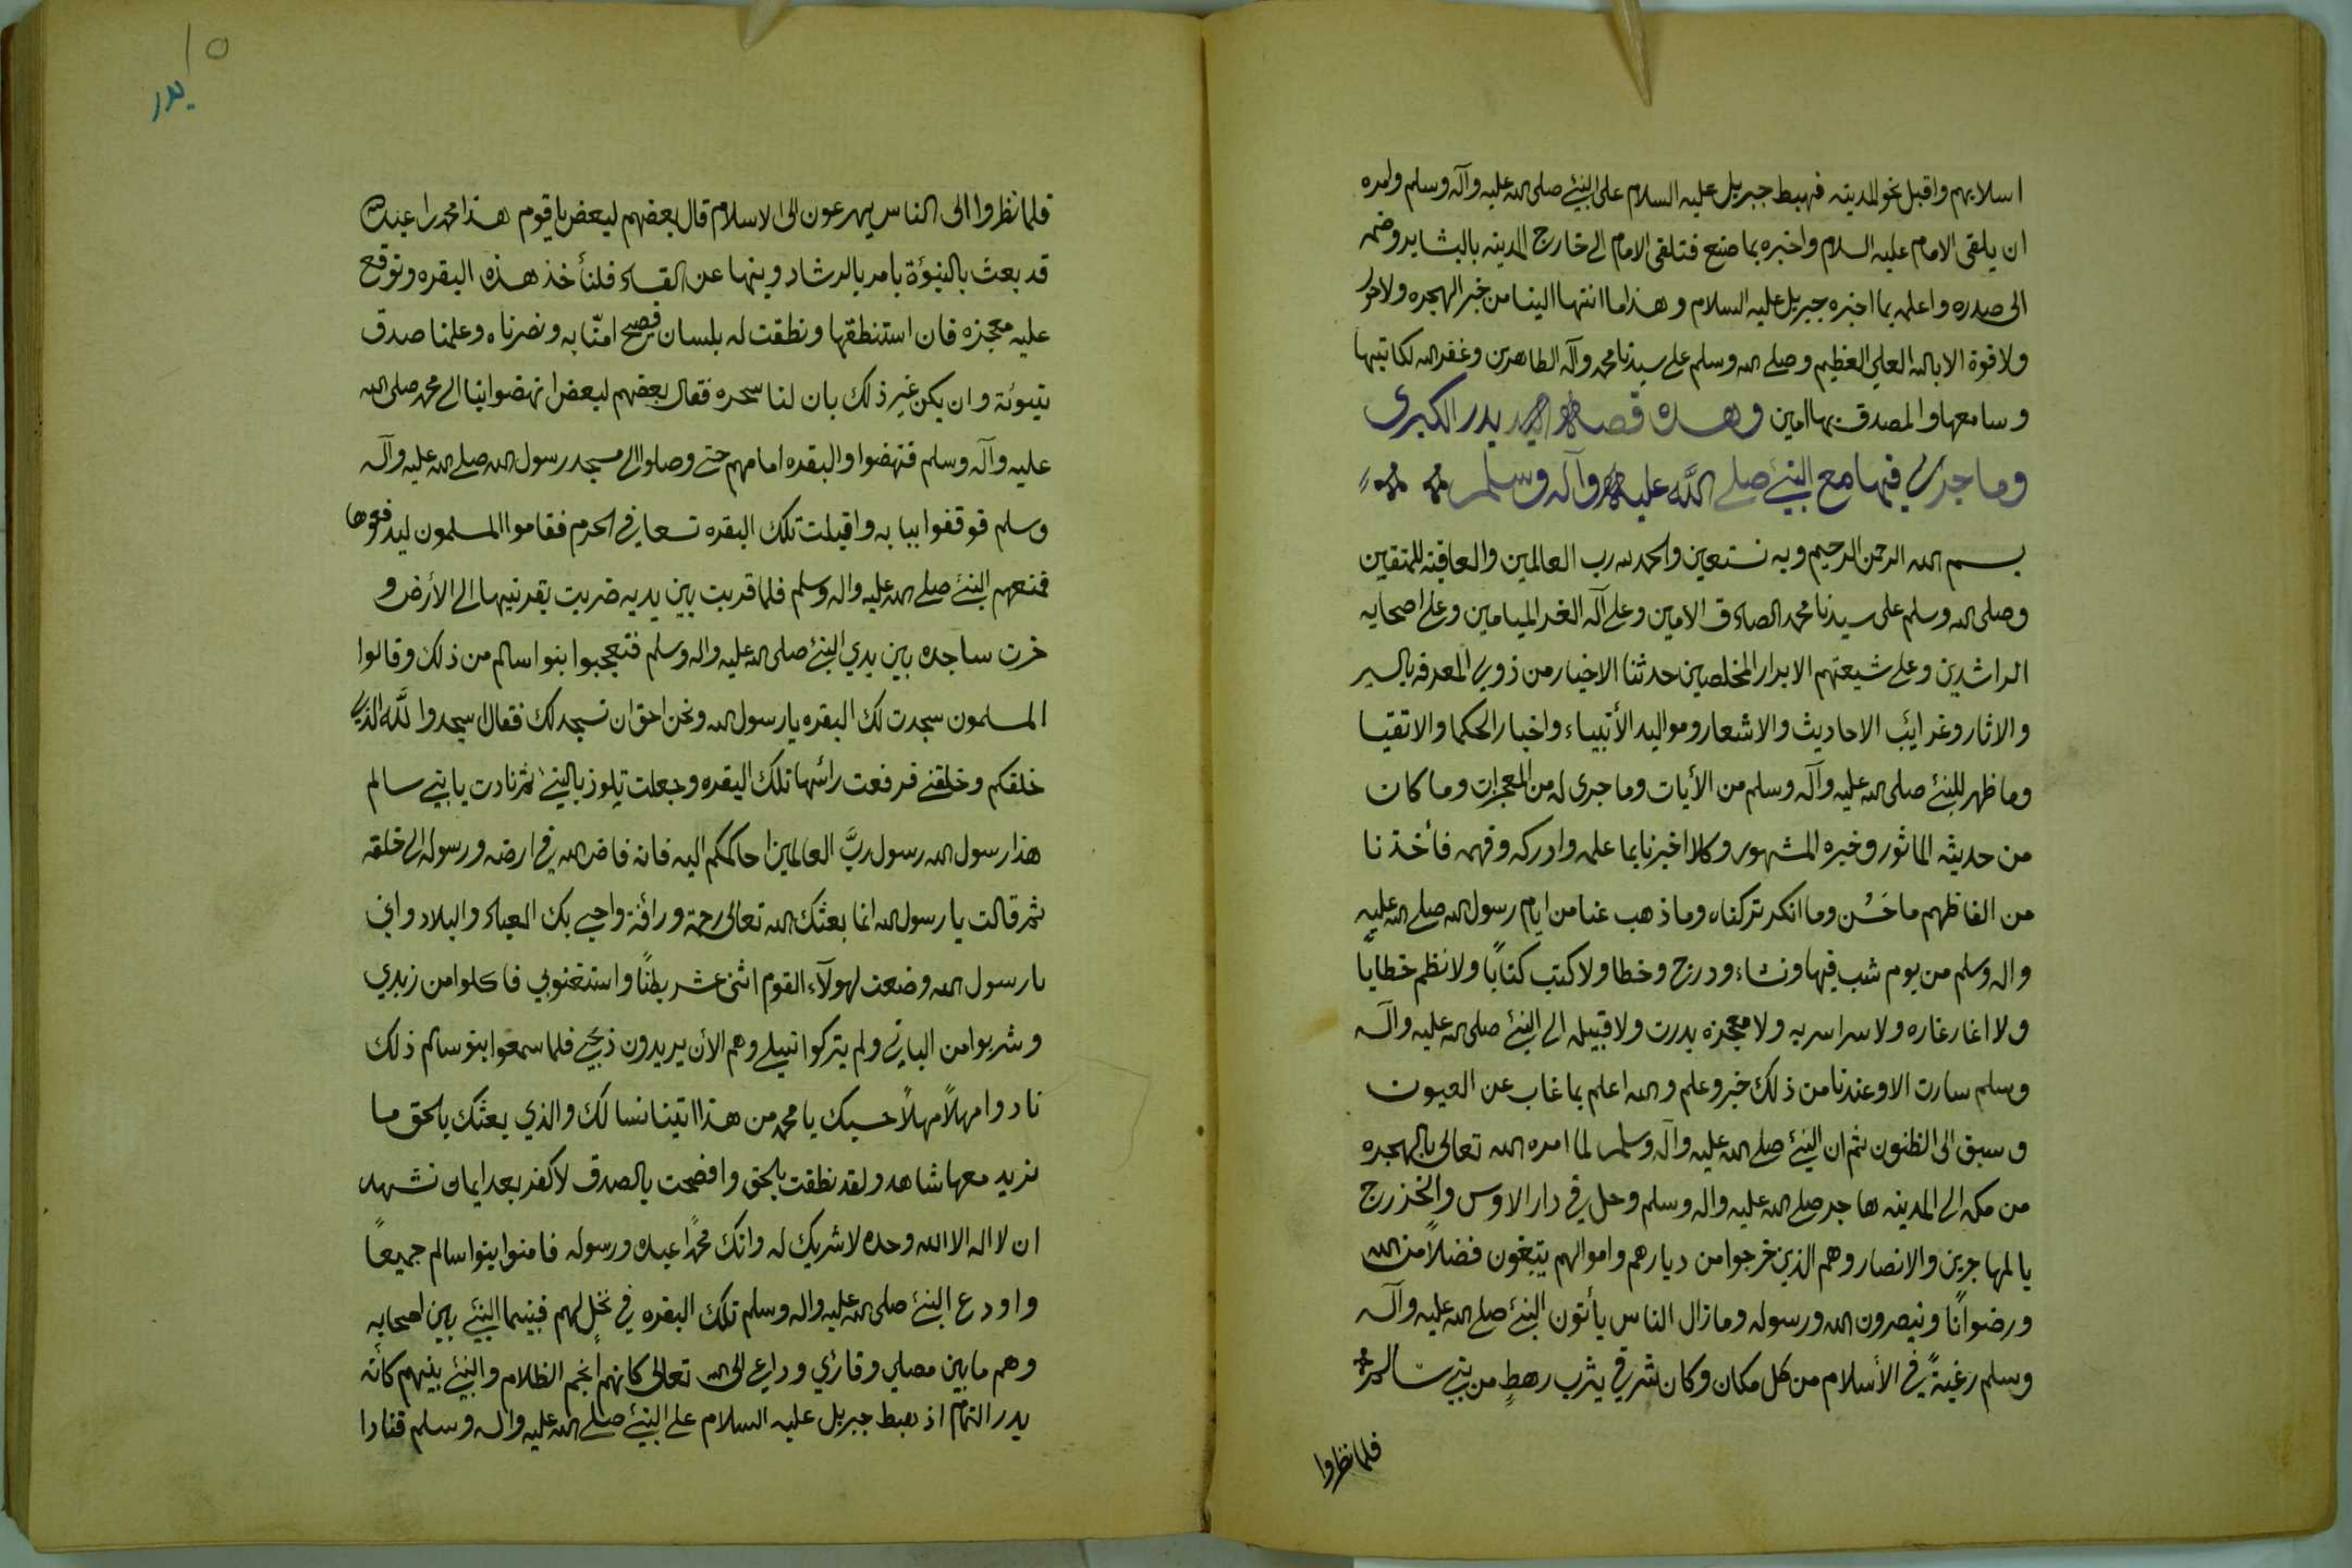 اسلابهم واقبل نحو المدينه فهبط جبريل عليه السلام على النبئ صلى الله عليه وآله وسلم وامره
ان يلقى الامام عليه السلام واخبره بما صنع فتلقى الامام الى خارج المدينه بالبشاير وضمه
الى صدره واعلمه بما اخبره جبريل عليه السلام وهذا ما انتها الينا من خبر الهجره ولا حول
ولا قوة الا بالله العلي العظيم وصلى الله وسلم على سيدنا محمد وآله الطاهرين وغفر الله لكاتبها
وسامعها والمصدق بها امين وهذه قصة بدر الكبرى
وما جرى فيها مع النبئ صلى الله عليه وآله وسلم
بسم الله الرحمن الرحيم وبه نستعين والحمد لله رب العالمين والعاقبة للمتقين
وصلى الله وسلم على سيدنا محمد الصادق الامين وعلى آله الغر الميامين وعلى اصحابه
الراشدين وعلى شيعتهم الابرار المخلصين حدثنا الاخيار من ذوي المعرفه بالسير
والاثار وغرائب الاحاديث والاشعار ومواليد الأنبياء واخبار الحكما والاتقيا
وما ظهر للنبئ صلى الله عليه وآله وسلم من الأيات وما جرى له من المعجزات وما كان
من حديثه الماثور وخبره المشهور وكلا اخبرنا بما علمه وادركه وفهمه فأخذنا
من الفاظهم ما حَسُن وما انكر تركناه وما ذهب عنا من ايام رسول الله صلى الله عليه
واله وسلم من يوم شب فيها ونشاء ودرج وخطا ولا كتب كتابًا ولا نظم خطابًا
ولا اغار غاره ولا سرا سريه ولا معجزه بدرت ولا قبيله الى النبئ صلى الله عليه وآله
وسلم سارت الا وعندنا من ذلك خبر وعلم والله اعلم بما غاب عن العيون
وسبق الى الظنون ثم ان النبئ صلى الله عليه وآله وسلم لما امره الله تعالى بالهجره
من مكه الى المدينه هاجر صلى الله عليه واله وسلم وحل في دار الاوس والخزرج
بالمهاجرين والانصار وهم الذين خرجوا من ديارهم واموالهم يبتغون فضلاً من الله
ورضوانًا وينصرون الله ورسوله وما زال الناس يأتون النبئ صلى الله عليه وآله
وسلم رغبةً في الأسلام من كل مكان وكان شرقي يثرب رهطٍ من بني سالم
فلما نظروا
١٥
بدر
فلما نظروا الى الناس يهرعون الى الاسلام قال بعضهم لبعض يا قوم هذا محمد ابن عبدالله
قد بعث بالنبؤة يامر بالرشاد وينها عن الفساد فلنأخذ هذه البقره ونوقع
عليه معجزه فان استنطقها ونطقت له بلسان فصيح امنّا به ونصرناه وعلمنا صدق
نبوئة وان يكن غير ذلك بان لنا سحره فقال بعضهم لبعض انهضوا بنا الى محمد صلى الله
عليه وآله وسلم فنهضوا والبقره امامهم حتى وصلوا الى مسجد رسول الله صلى الله عليه وآله
وسلم فوقفوا ببابه واقبلت تلك البقره تسعا في الحرم فقاموا المسلمون ليدفعوها
فمنعهم النبئ صلى الله عليه واله وسلم فلما قربت بين يديه ضربت بقرنيها الى الأرض و
خرت ساجده بين يدي النبئ صلى الله عليه واله وسلم فتعجبوا بنوا سالم من ذلك وقالوا
المسلمون سجدت لك البقره يا رسول الله ونحن احق ان نسجد لك فقال اسجدوا للَّه الذي
خلقكم وخلقني فرفعت رائسها تلك البقره وجعلت تلوذ بالنبئ ثم نادت يا بني سالم
هذا رسول الله رسول ربَّ العالمين احاكمكم اليه فانه قاض الله في ارضه ورسوله الى خلقه
ثم قالت يا رسول الله انما بعثك الله تعالى رحمة ورافة واحيى بك العباد والبلاد واني
يا رسول الله وضعت لهولآء القوم اثنى عشر بطنًا واستغنوبي فاكلوا من زبدي
وشربوا من الباني ولم يتركوا نبيلي وهم الأن يريدون ذبحي فلما سمعوا بنو سالم ذلك
نادوا مهلاً مهلاً حسبك يا محمد من هذا اتينا نسالك والذي بعثك بالحق ما
نريد معها شاهد ولقد نطقت بالحق وافصحت بالصدق لا كفر بعد ايمان نشهد
ان لا اله الا الله وحده لا شريك له وانك محمدًا عبده ورسوله فامنوا بنوا سالم جميعاً
واودع النبئ صلى الله عليه واله وسلم تلك البقره في نخلٍ لهم فبينما النبئ بين اصحابه
وهم ما بين مصلي وقارئ وداعي الى الله تعالى كانهم انجم الظلام والنبئ بينهم كأنه
بدر التمام اذ هبط جبريل عليه السلام على النبئ صلى الله عليه واله وسلم فنادا